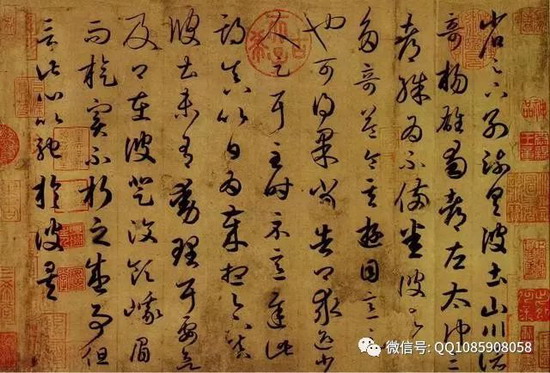 省足下別疏具彼土山川諸
奇楊雄蜀都左太沖三
都殊為不備悉彼故為
多奇益令其遊目意足
也可得果當告卿求迎少
人足耳至時示意遲此
期真以日為歲想足下鎮
彼土未有動理耳要欲
及卿在彼登汶領峨眉
而旋實不朽之盛事但
言此心以馳於彼矣
微信号: QQ1085908058